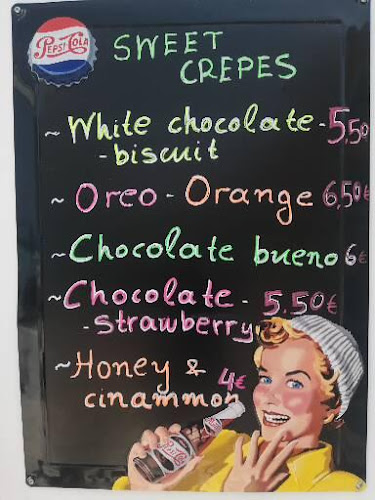 PEPSI-COLA
SWEET
CREPES
~ White chocolate - 5,50
- biscuit
~ Oreo - Orange 6,50€
~ Chocolate bueno 6€
~ Chocolate - 5.50€
- strawberry
~ Honey &
cinammon 4€
Pepsi-Cola